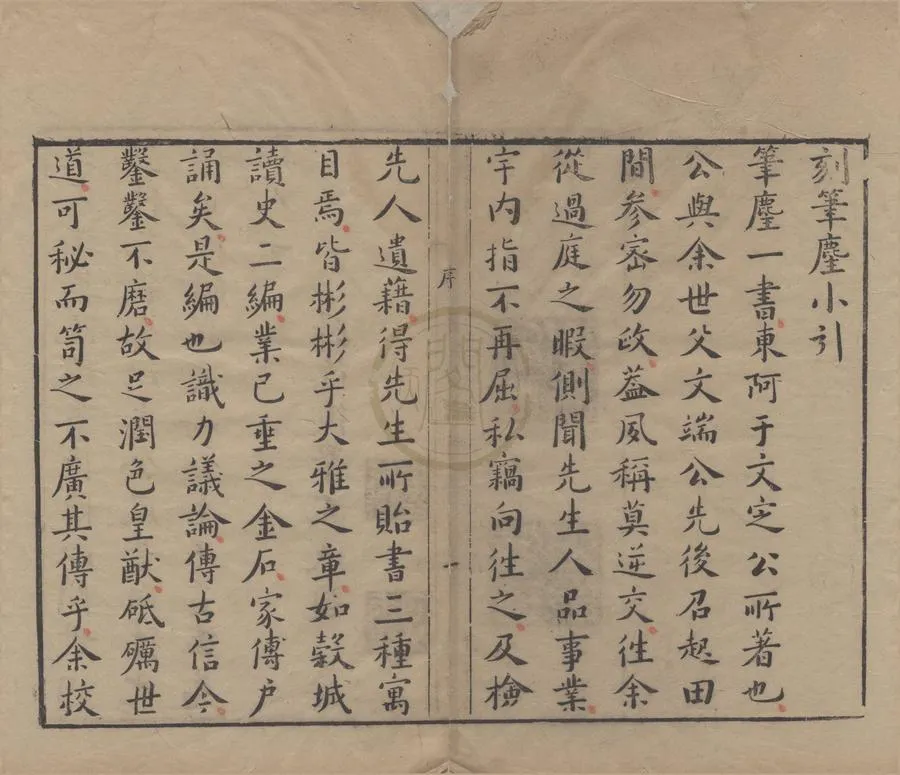 刻筆麈小引
筆麈一書東阿于文定公所著也
公與余世父文端公先後召起田
間參密勿政葢夙稱莫逆交往余
從過庭之暇側聞先生人品事業
宇內指不再屈私竊向往之及檢
序
一
先人遺藉得先生所貽書三種寓
目焉皆彬彬乎大雅之章如穀城
讀史二編業已垂之金石家傳户
誦矣是編也識力議論傳古信今
鑿鑿不磨故足潤色皇猷砥礪世
道可秘而笥之不廣其傳乎余校